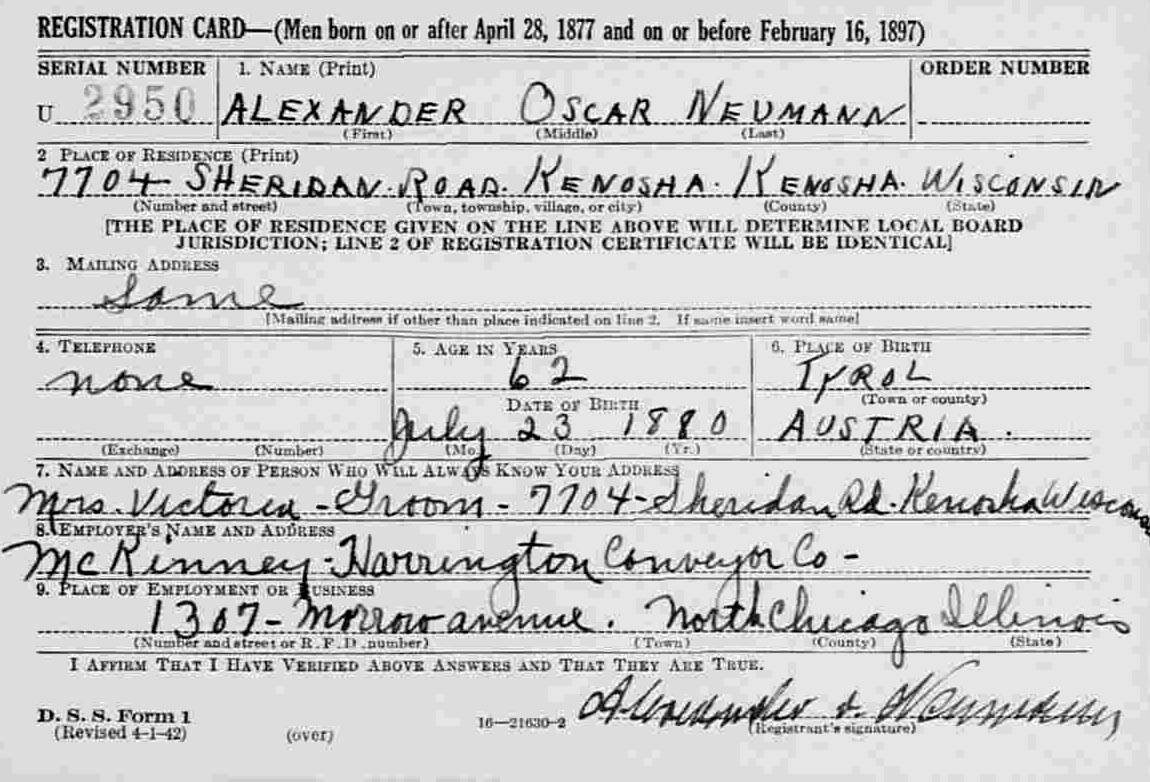 REGISTRATION CARD—(Men born on or after April 28, 1877 and on or before February 16, 1897)
SERIAL NUMBER 1. NAME (Print) ORDER NUMBER
U 2950 ALEXANDER OSCAR NEUMANN
(First) (Middle) (Last)
2 PLACE OF RESIDENCE (Print)
7704 SHERIDAN. ROAD. KENOSHA. KENOSHA. WISCONSIN
(Number and street) (Town, township, village, or city) (County) (State)
[THE PLACE OF RESIDENCE GIVEN ON THE LINE ABOVE WILL DETERMINE LOCAL BOARD
JURISDICTION; LINE 2 OF REGISTRATION CERTIFICATE WILL BE IDENTICAL]
3. MAILING ADDRESS
Same
[Mailing address if other than place indicated on line 2. If same insert word same]
4. TELEPHONE 5. AGE IN YEARS 6. PLACE OF BIRTH
none 62 TYROL
DATE OF BIRTH (Town or county)
July 23 1880 AUSTRIA.
(Exchange) (Number) (Mo.) (Day) (Yr.) (State or country)
7. NAME AND ADDRESS OF PERSON WHO WILL ALWAYS KNOW YOUR ADDRESS
Mrs. Victoria - Groom - 7704 - Sheridan Rd. Kenosha Wisconsin
8. EMPLOYER'S NAME AND ADDRESS
McKinney - Harrington Conveyor Co -
9. PLACE OF EMPLOYMENT OR BUSINESS
1307 - Morrow avenue. North Chicago Illinois
(Number and street or R. F. D. number) (Town) (County) (State)
I AFFIRM THAT I HAVE VERIFIED ABOVE ANSWERS AND THAT THEY ARE TRUE.
Alexander o. Neumann
D. S. S. Form 1 16—21630-2 (Registrant's signature)
(Revised 4-1-42) (over)